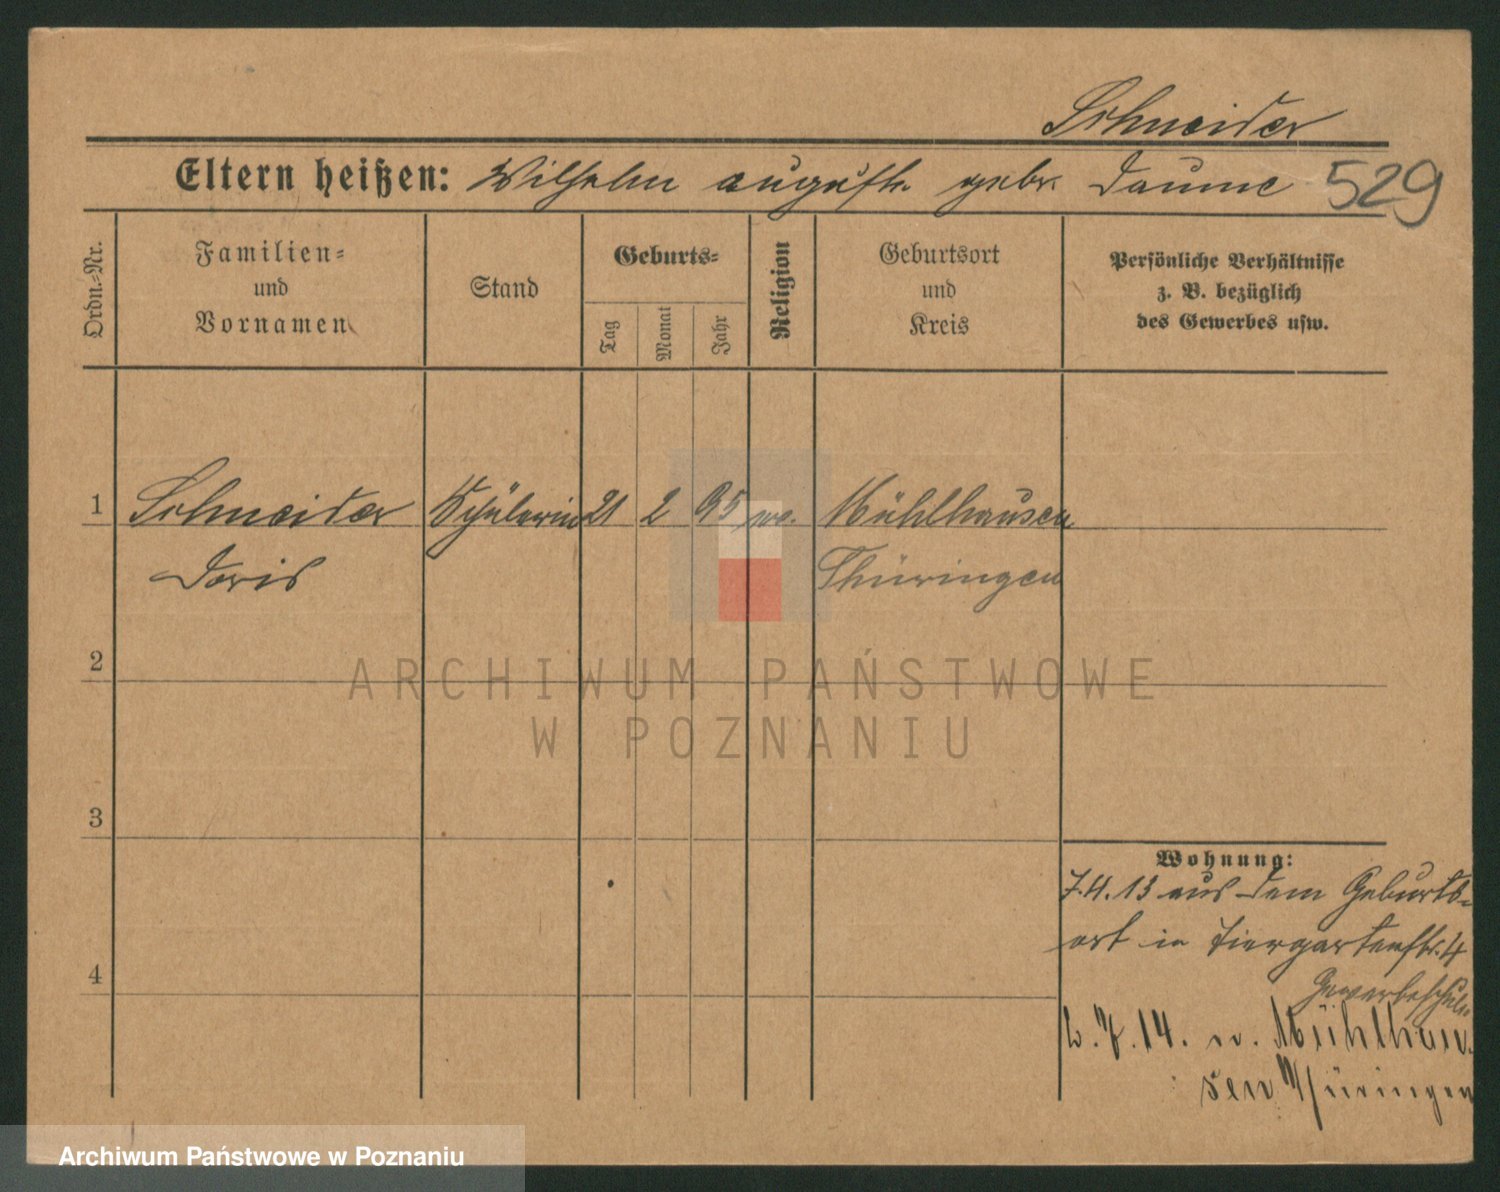 Schneider
Eltern heißen: Wilhelm auguste gebr. Daume 529
Ordn.-Nr.
Familien-
und
Vornamen
Stand
Geburts-
Tag
Monat
Jahr
Religion
Geburtsort
und
Kreis
Persönliche Verhältnisse
z. B. bezüglich
des Gewerbes usw.
1 Schneider Schülerin 21 2 95 Mühlhausen
Doris Thüringen
2
3
4
Wohnung:
7.4.13 aus dem Geburts-
ort in Tiergartenstr. 4
Gewerbeschule
7.14. n. Mühlhau-
sen Thüringen
ARCHIWUM PAŃSTWOWE
W POZNANIU
Archiwum Państwowe w Poznaniu